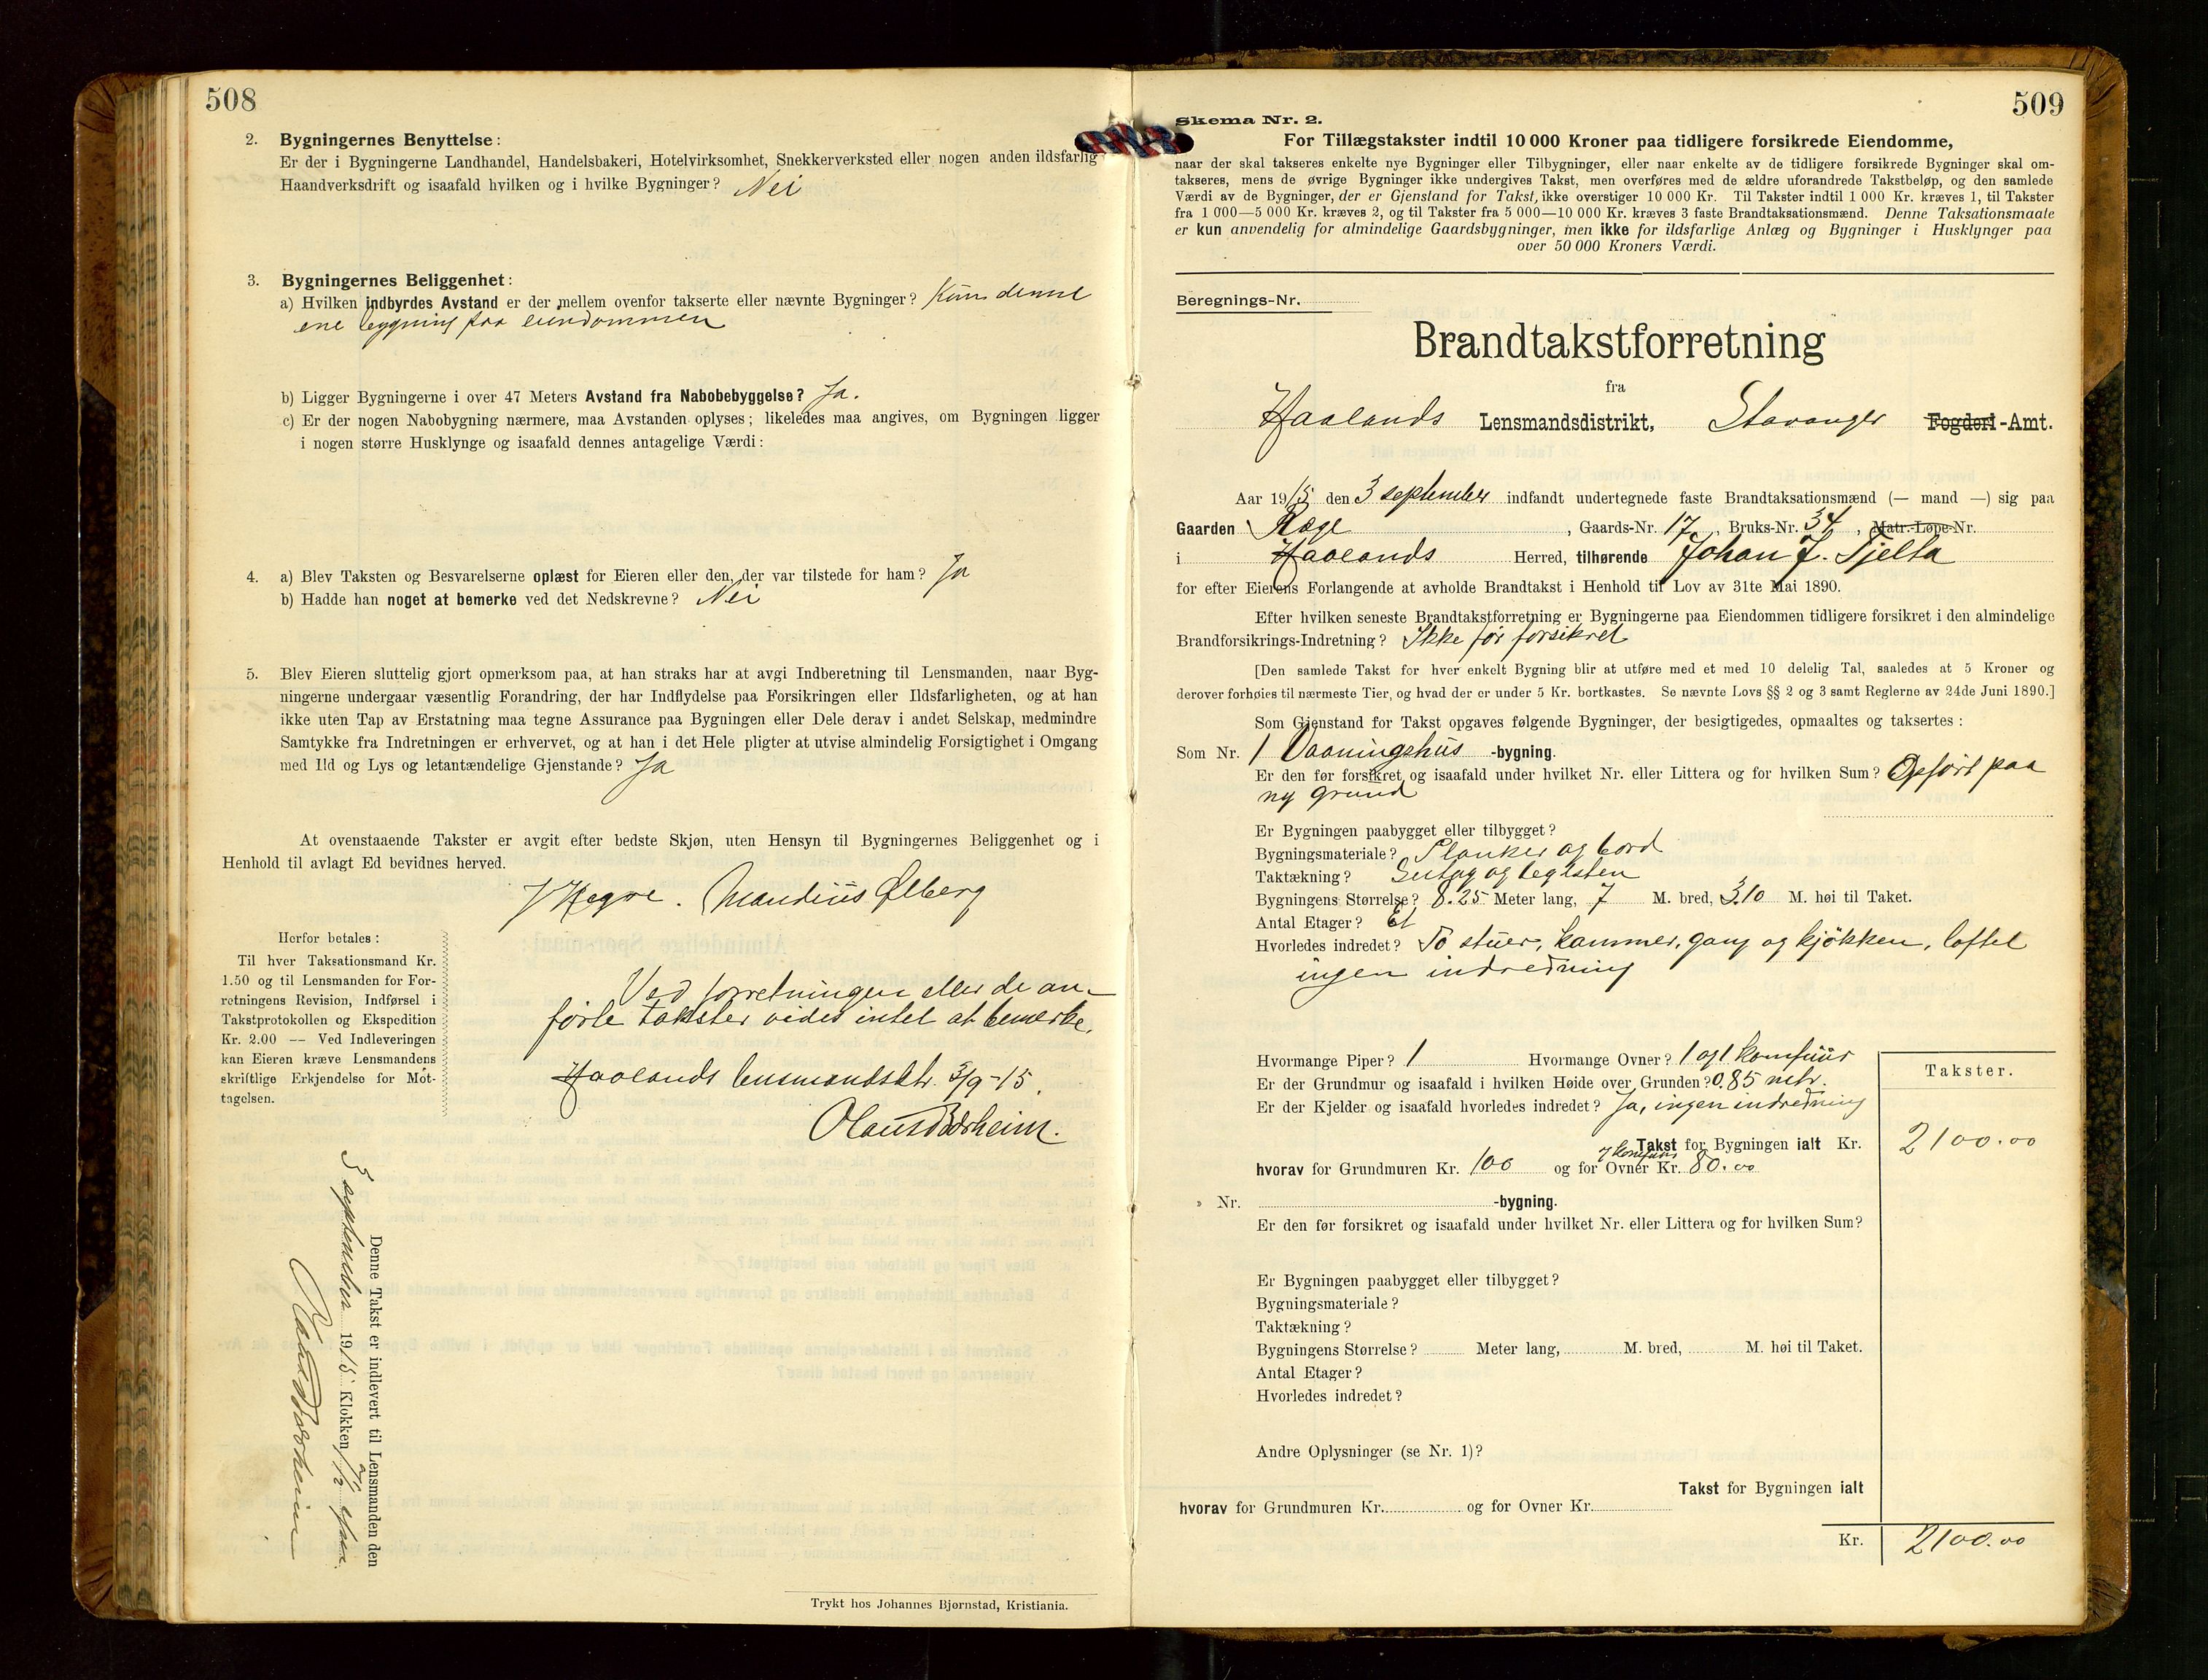 508
2. Bygningernes Benyttelse:
Er der i Bygningerne Landhandel, Handelsbakeri, Hotelvirksomhet, Snekkerverksted eller nogen anden ildsfarlig
Haandverksdrift og isaafald hvilken og i hvilke Bygninger? Nei
3. Bygningernes Beliggenhet:
a) Hvilken indbyrdes Avstand er der mellem ovenfor takserte eller nævnte Bygninger? Kun denne
ene bygning paa eiendommen
b) Ligger Bygningerne i over 47 Meters Avstand fra Nabobebyggelse? Ja.
c) Er der nogen Nabobygning nærmere, maa Avstanden oplyses; likeledes maa angives, om Bygningen ligger
i nogen større Husklynge og isaafald dennes antagelige Værdi:
4. a) Blev Taksten og Besvarelserne oplæst for Eieren eller den, der var tilstede for ham? Ja
b) Hadde han noget at bemerke ved det Nedskrevne? Nei
5. Blev Eieren sluttelig gjort opmerksom paa, at han straks har at avgi Indberetning til Lensmanden, naar Byg-
ningerne undergaar væsentlig Forandring, der har Indflydelse paa Forsikringen eller Ildsfarligheten, og at han
ikke uten Tap av Erstatning maa tegne Assurance paa Bygningen eller Dele derav i andet Selskap, medmindre
Samtykke fra Indretningen er erhvervet, og at han i det Hele pligter at utvise almindelig Forsigtighet i Omgang
med Ild og Lys og letantændelige Gjenstande? Ja
At ovenstaaende Takster er avgit efter bedste Skjøn, uten Hensyn til Bygningernes Beliggenhet og i
Henhold til avlagt Ed bevidnes herved.
Maudius Ølberg
Herfor betales:
Til hver Taksationsmand Kr.
1.50 og til Lensmanden for For-
retningens Revision, Indførsel i
Takstprotokollen og Ekspedition
Kr. 2.00 — Ved Indleveringen
kan Eieren kræve Lensmandens
skriftlige Erkjendelse for Mot-
tagelsen.
Ved forretningen eller de an-
førte takster vides intet at bemerke.
Haalands lensmandsktr. 3/9-15.
Olaus Børheim.
Denne Takst er indlevert til Lensmanden den
5 september 1915 Klokken
Olaus Børheim
Trykt hos Johannes Bjørnstad, Kristiania.
509
Skema Nr. 2.
For Tillægstakster indtil 10 000 Kroner paa tidligere forsikrede Eiendomme,
naar der skal takseres enkelte nye Bygninger eller Tilbygninger, eller naar enkelte av de tidligere forsikrede Bygninger skal om-
takseres, mens de øvrige Bygninger ikke undergives Takst, men overføres med de ældre uforandrede Takstbeløp, og den samlede
Værdi av de Bygninger, der er Gjenstand for Takst, ikke overstiger 10 000 Kr. Til Takster indtil 1 000 Kr. kræves 1, til Takster
fra 1 000—5 000 Kr. kræves 2, og til Takster fra 5 000—10 000 Kr. kræves 3 faste Brandtaksationsmænd. Denne Taksationsmaate
er kun anvendelig for almindelige Gaardsbygninger, men ikke for ildsfarlige Anlæg og Bygninger i Husklynger paa
over 50 000 Kroners Værdi.
Beregnings-Nr.
Brandtakstforretning
fra
Haalands Lensmandsdistrikt, Stavanger Fogderi-Amt.
Aar 1915 den 3 september indfandt undertegnede faste Brandtaksationsmænd (— mand —) sig paa
Gaarden Ræge, Gaards-Nr. 17, Bruks-Nr. 34, Matr.-Løpe-Nr.
i Haalands Herred, tilhørende Johan J. Tjelta
for efter Eierens Forlangende at avholde Brandtakst i Henhold til Lov av 31te Mai 1890.
Efter hvilken seneste Brandtakstforretning er Bygningerne paa Eiendommen tidligere forsikret i den almindelige
Brandforsikrings-Indretning? Ikke før forsikret
[Den samlede Takst for hver enkelt Bygning blir at utføre med et med 10 delelig Tal, saaledes at 5 Kroner og
derover forhøies til nærmeste Tier, og hvad der er under 5 Kr. bortkastes. Se nævnte Lovs §§ 2 og 3 samt Reglerne av 24de Juni 1890.]
Som Gjenstand for Takst opgaves følgende Bygninger, der besigtigedes, opmaaltes og taksertes:
Som Nr. 1 Vaaningshus -bygning.
Er den før forsikret og isaafald under hvilket Nr. eller Littera og for hvilken Sum? Opført paa
ny grund
Er Bygningen paabygget eller tilbygget?
Bygningsmateriale? Planker og bord
Taktækning? Sutag og teglsten
Bygningens Størrelse? 8.25 Meter lang, 7 M. bred, 3.10 M. høi til Taket.
Antal Etager? Et
Hvorledes indredet? To stuer, kammer, gang og kjøkken, loftet
ingen indredning
Hvormange Piper? 1 Hvormange Ovner? 1 og 1 komfuur
Er der Grundmur og isaafald i hvilken Høide over Grunden? 0.85 mtr.
Er der Kjelder og isaafald hvorledes indredet? Ja, ingen indredning
Takster.
Takst for Bygningen ialt Kr. 2100.00
hvorav for Grundmuren Kr. 100 og for Ovner Kr. 80.00
» Nr. -bygning.
Er den før forsikret og isaafald under hvilket Nr. eller Littera og for hvilken Sum?
Er Bygningen paabygget eller tilbygget?
Bygningsmateriale?
Taktækning?
Bygningens Størrelse? Meter lang, M. bred, M. høi til Taket.
Antal Etager?
Hvorledes indredet?
Andre Oplysninger (se Nr. 1)?
Takst for Bygningen ialt
hvorav for Grundmuren Kr. og for Ovner Kr.
Kr. 2100.00